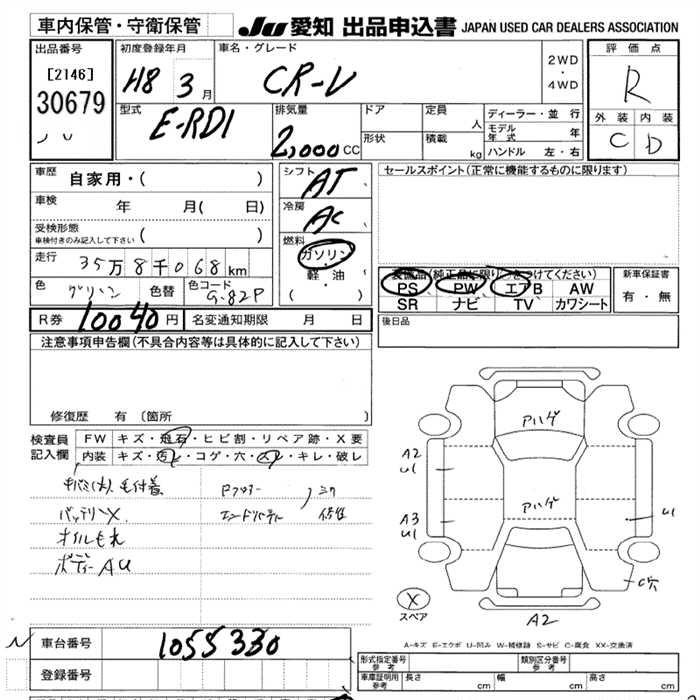 車内保管・守衛保管 JU 愛知 出品申込書 JAPAN USED CAR DEALERS ASSOCIATION
出品番号 初度登録年月 車名・グレード 評価点
[2146] H8 3月 CR-V 2WD・4WD R
30679 型式 排気量 ドア 定員 人 ディーラー・並行 外装 内装
E-RD1 2,000CC 形状 積載 kg モデル年式 年 C D
ハンドル 左・右
車歴 自家用・( ) シフト AT セールスポイント(正常に機能するものに限ります)
車検 年 月( 日) 冷房 AC
受検形態 ( )
車検付きのみ記入して下さい
燃料 ガソリン・軽油・( )
走行 35万8千068km
色 グリーン 色替 色コード G-82P
装備品(純正品に限り○をつけてください) 新車保証書
PS PW エアB AW 有・無
SR ナビ TV カワシート
R券 10040円 名変通知期限 月 日 後日品
注意事項申告欄(不具合内容等は具体的に記入して下さい)
修復歴 有(箇所 )
検査員記入欄 FW キズ・飛石・ヒビ割・リペア跡・X要
内装 キズ・汚レ・コゲ・穴・スレ・キレ・破レ
バッテリX
オイルもれ
ボディーAU
アハゲ
アハゲ
A2
U1
A3
U1
U1
C穴
A2
X
スペア
A-キズ E-エクボ U-凹み W-補修跡 S-サビ C-腐食 XX-交換済
車台番号 1055330
登録番号
形式指定番号 参考 類別区分番号 参考
車庫証明用 参考 長さ cm 幅 cm 高さ cm